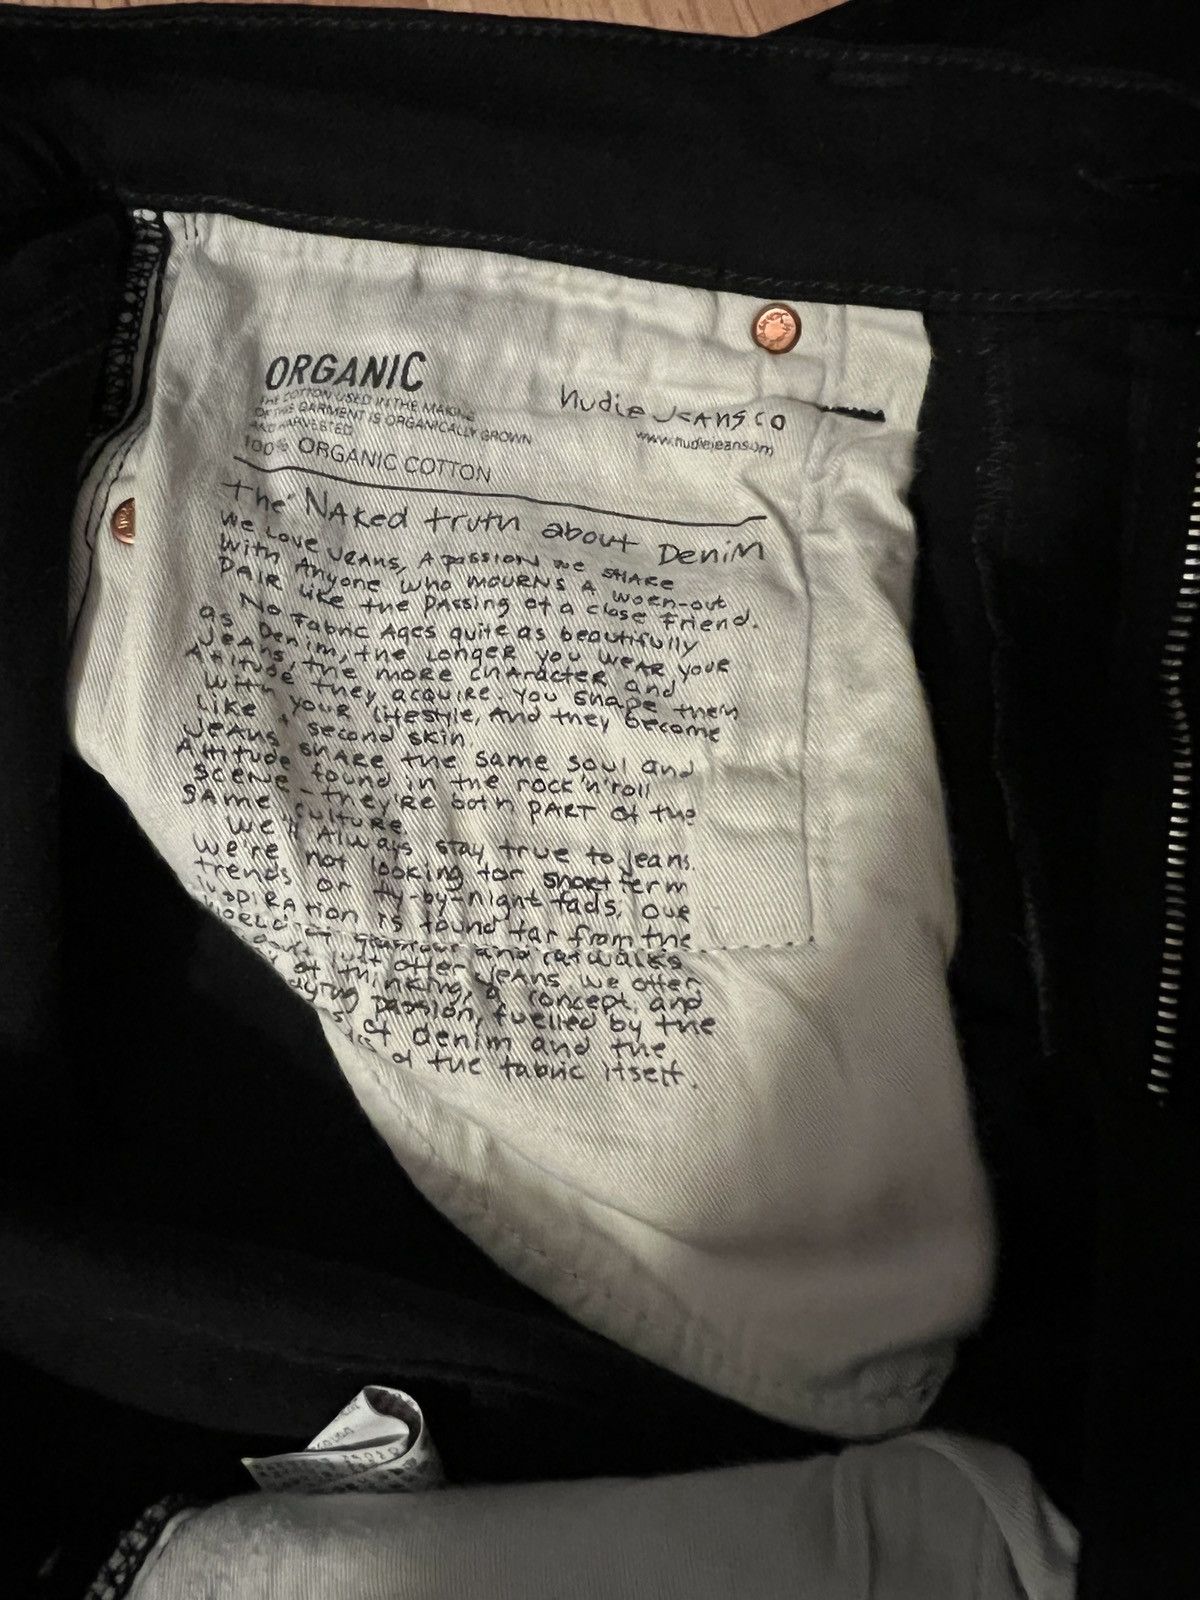 ORGANIC
THE COTTON USED IN THE MAKING
OF THE GARMENT IS ORGANICALLY GROWN
AND HARVESTED
100% ORGANIC COTTON
Nudie Jeans co
www.nudiejeans.com
the Naked truth about Denim
We Love Jeans, A passion we share
with Anyone who mourns a worn-out
pair like the passing of a close friend.
No Fabric Ages quite as beautifully
as Denim, the longer you wear your
Jeans, the more character and
Attitude they acquire. You shape them
with your lifestyle, And they become
like a second skin.
Jeans share the same soul and
Attitude found in the rock'n'roll
scene - they're both part of the
same culture.
We'll Always stay true to jeans.
We're not looking for short term
trends or fly-by-night fads, our
inspiration is found far from the
world of glamour and catwalks
just offer jeans. we offer
of thinking, a concept and
passion, fuelled by the
of denim and the
of the fabric itself.